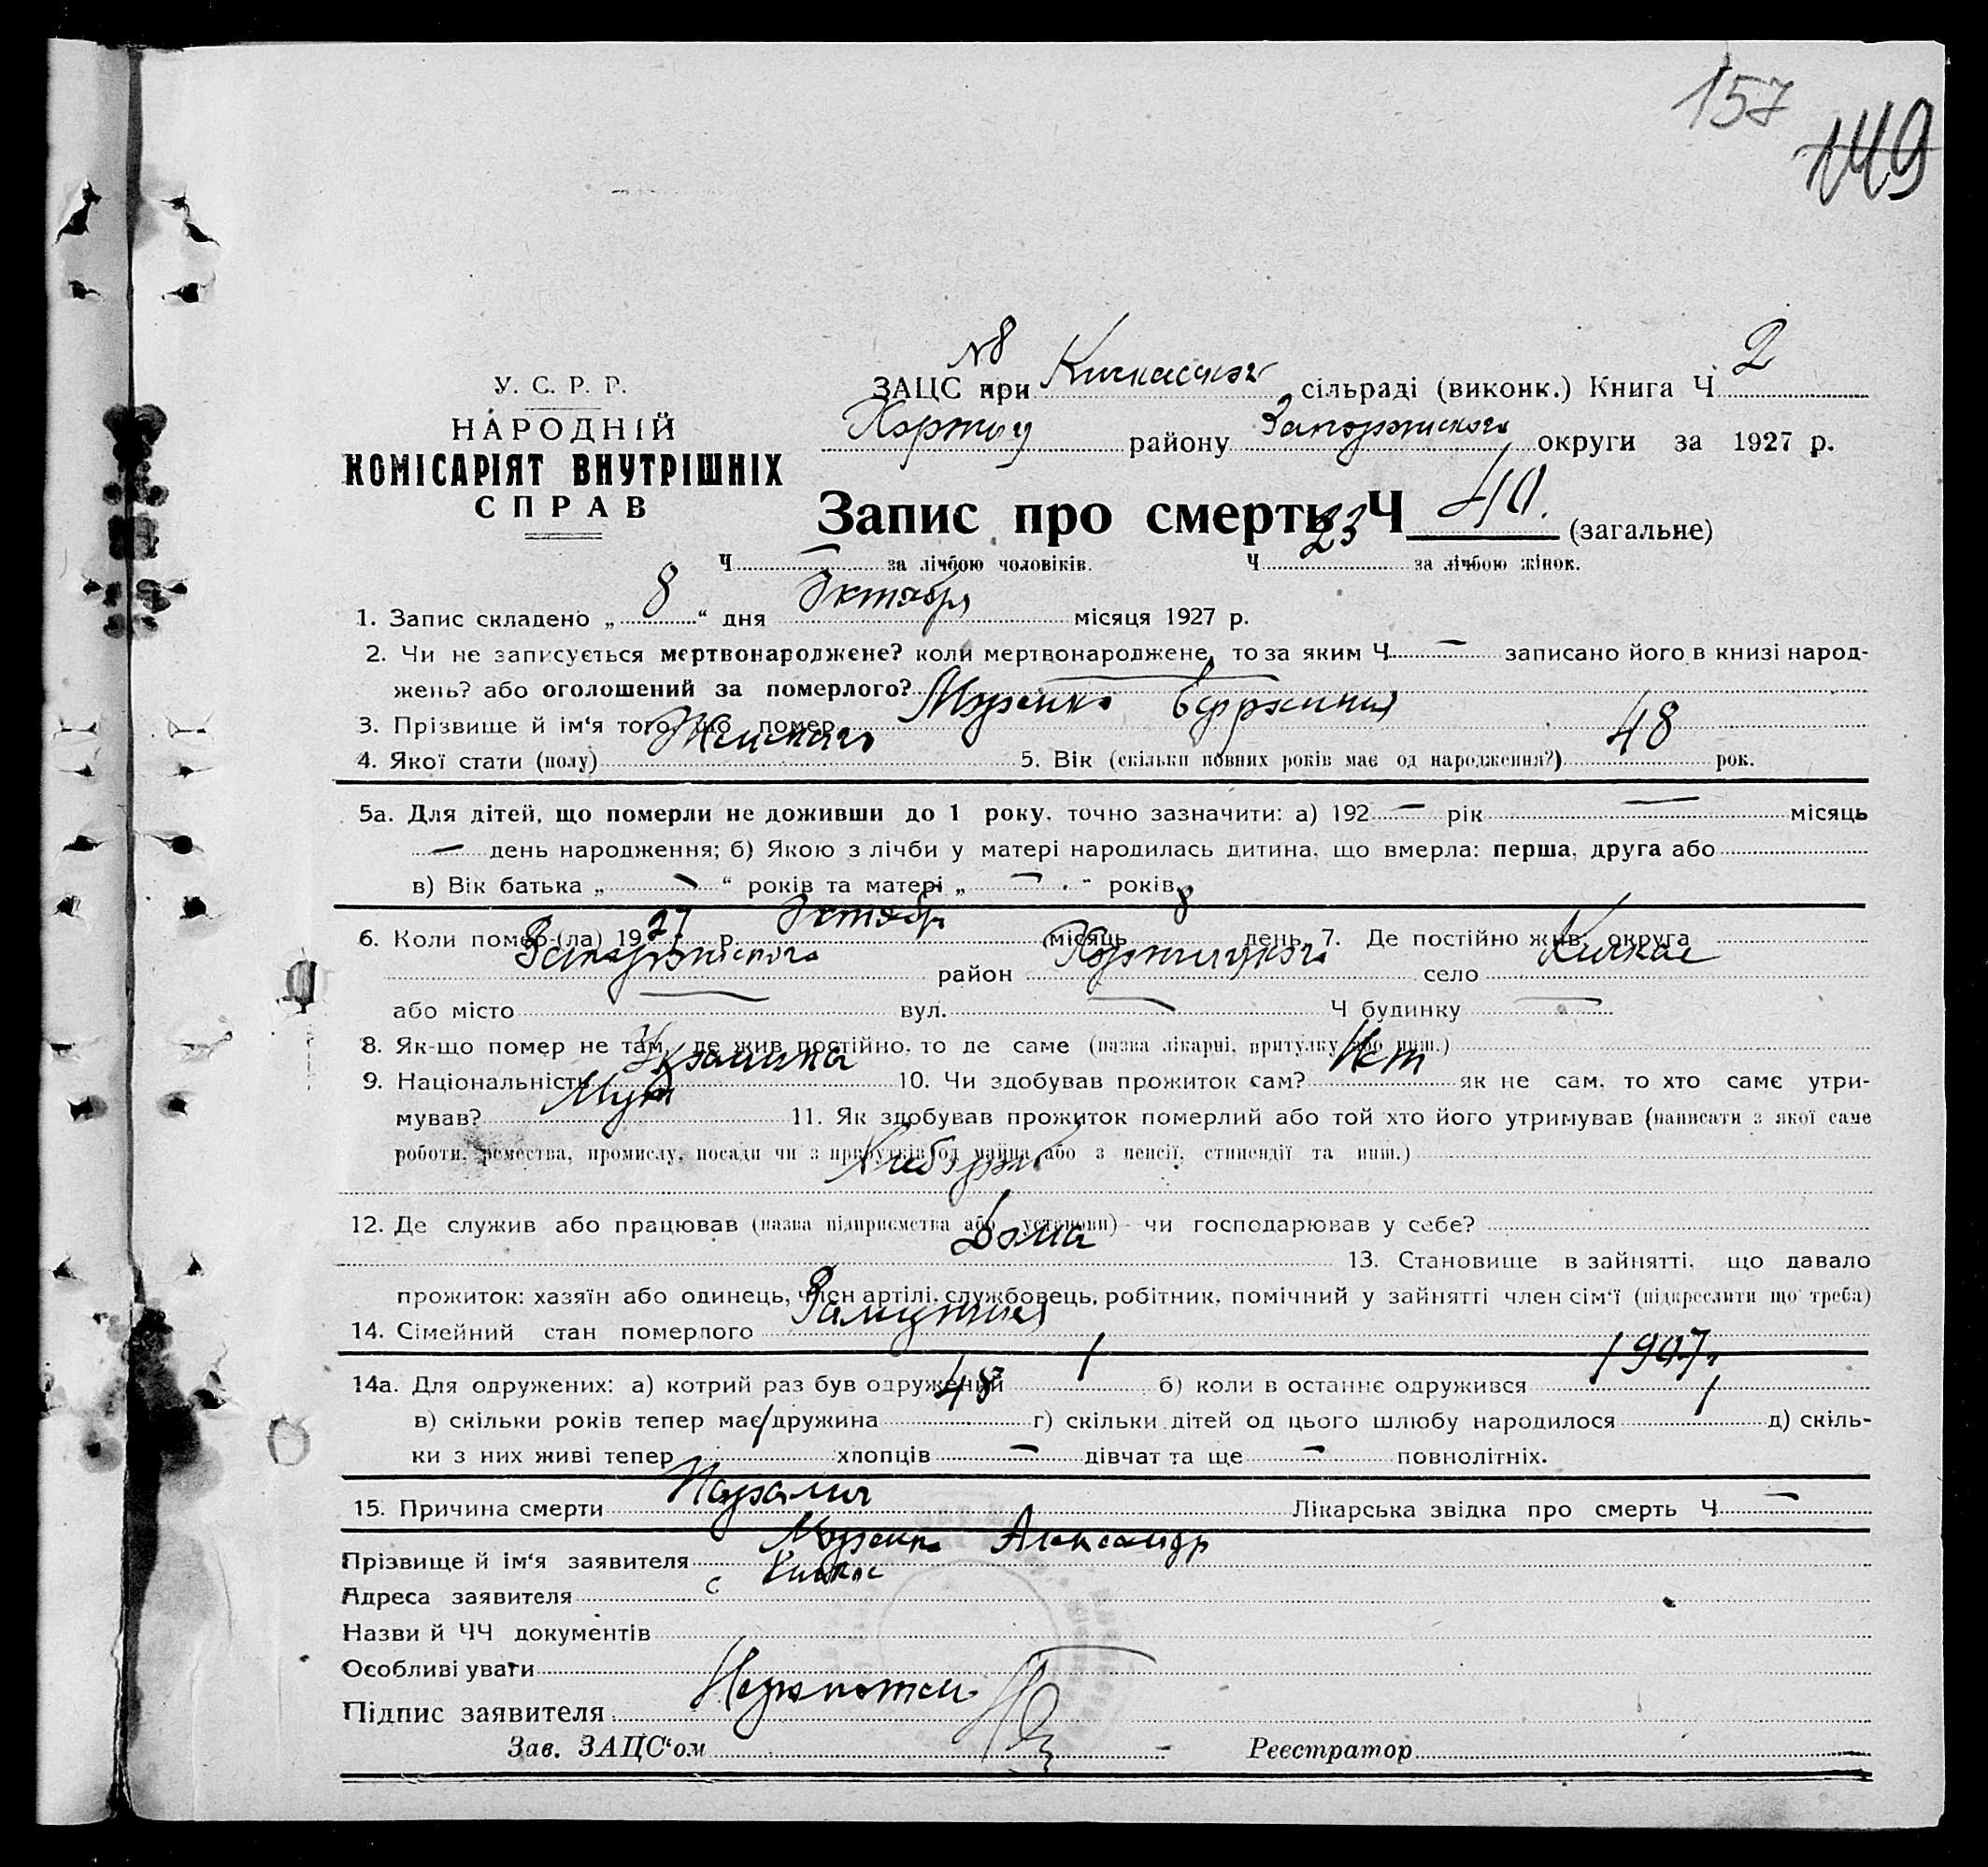 157
149
№8
У. С. Р. Р.
НАРОДНІЙ
КОМІСАРІЯТ ВНУТРІШНІХ
СПРАВ
ЗАЦС при Кичкаском сільраді (виконк.) Книга Ч. 2
району Запорожского округи за 1927 р.
Запис про смерть Ч 40. (загальне)
Ч. — за лічбою чоловіків. Ч. 23 за лічбою жінок.
1. Запис складено „ 8 “ дня Октября місяця 1927 р.
2. Чи не записується мертвонароджене? коли мертвонароджене, то за яким Ч. — записано його в книзі народ-
жень? або оголошений за померлого? —
3. Прізвище й ім‘я того, що помер
4. Якої стати (полу) Женского 5. Вік (скільки повних років має од народження?) 48 рок.
5а. Для дітей, що померли не доживши до 1 року, точно зазначити: а) 192 — рік — місяць
— день народження; б) Якою з лічби у матері народилась дитина, що вмерла: перша, друга або
в) Вік батька „ — “ років та матері „ — “ років.
6. Коли помер-(ла) 1927 р. Октябр місяць 8 день 7. Де постійно жив: округа
Запорожского район Хортицкого село Кичкас
або місто — вул. — Ч будинку —
8. Як-що помер не там, де жив постійно, то де саме (назва лікарні, притулку або инш.)
9. Національність Украинка 10. Чи здобував прожиток сам? Нет як не сам, то хто саме утри-
мував? Муж 11. Як здобував прожиток померлий або той хто його утримував (написати з якої саме
роботи, ремества, промислу, посади чи з прибутків од майна або з пенсії, стипендії та инш.)
12. Де служив або працював (назва підприємства або установи) чи господарював у себе?
Дома 13. Становище в зайнятті, що давало
прожиток: хазяїн або одинець, член артілі, службовець, робітник, помічний у зайнятті член сім‘ї (підкреслити що треба)
14. Сімейний стан померлого Замужняя
14а. Для одружених: а) котрий раз був одружений 1 б) коли в останнє одружився 1907г.
в) скільки років тепер має дружина 48 г) скільки дітей од цього шлюбу народилося 1 д) скіль-
ки з них живі тепер 1 хлопців — дівчат та ще — повнолітніх.
15. Причина смерти Паралич Лікарська звідка про смерть Ч. —
Прізвище й ім‘я заявителя Александр
Адреса заявителя с Кичкас
Назви й ЧЧ документів
Особливі уваги
Підпис заявителя Неграмотен
Зав. ЗАЦС‘ом Реєстратор